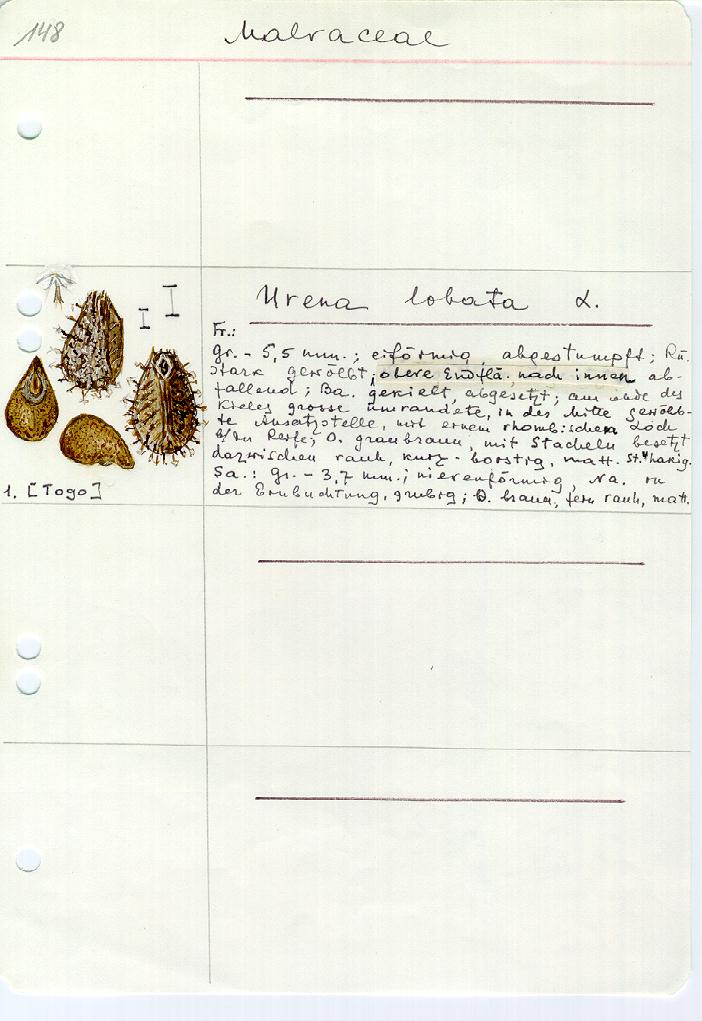 148
Malvaceae
Urena lobata L.
Fr.:
gr. - 5,5 mm.; eiförmig, abgestumpft; Rü.
stark gewölbt; obere Endflä. nach innen ab-
fallend; Ba. gekielt, abgesetzt; am Ende des
Kieles grosse umrandete, in der Mitte gewölb-
te Ansatzstelle, mit einem rhombischen Loch
b/dn Reife; O. graubraun, mit Stacheln besetzt
dazwischen rauh, kurz-borstig, matt. St. hakig.
Sa.: gr. - 3,7 mm.; nierenförmig, Na. in
der Einbuchtung, grubig; O. braun, fein rauh, matt.
1. [Togo]